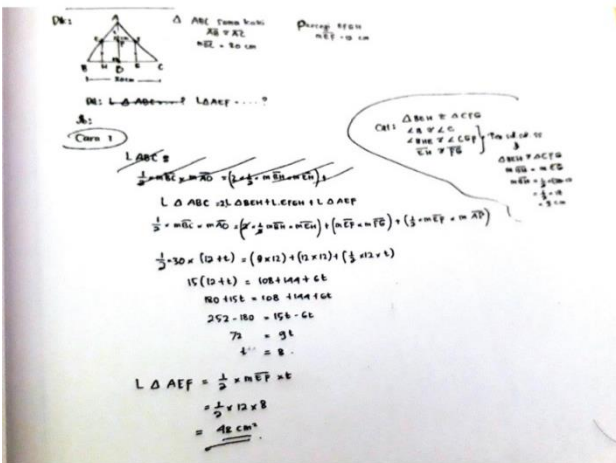 Dik:
Δ ABC sama kaki
AB ≅ AC
mBC = 30 cm
Persegi EFGH
mEF = 12 cm
A
B H D G C
30 cm
Dit: L Δ ABC ....? LΔAEF ....?
Jb:
Cara 1
L ABC =
½ × mBC × mAD = (2 × ½ × mBH × mEH) +
L Δ ABC = 2L ΔBEH + L EFGH + L Δ AEF
½ × mBC × mAD = (2 × ½ mBH × mEH) + (mEF × mFG) + (½ × mEF × m AP)
½ × 30 × (12+t) = (9 × 12) + (12 × 12) + (½ × 12 × t)
15 (12 + t) = 108 + 144 + 6t
180 + 15t = 108 + 144 + 6t
252 - 180 = 15t - 6t
72 = 9t
t = 8
L Δ AEF = ½ × mEF × t
= ½ × 12 × 8
= 48 cm²
Cat: Δ BEH ≅ Δ CFG
∠B ≅ ∠C
∠BHE ≅ ∠CGF
EH ≅ FG
ΔBEH ≅ ΔCFG
mBH = mCG